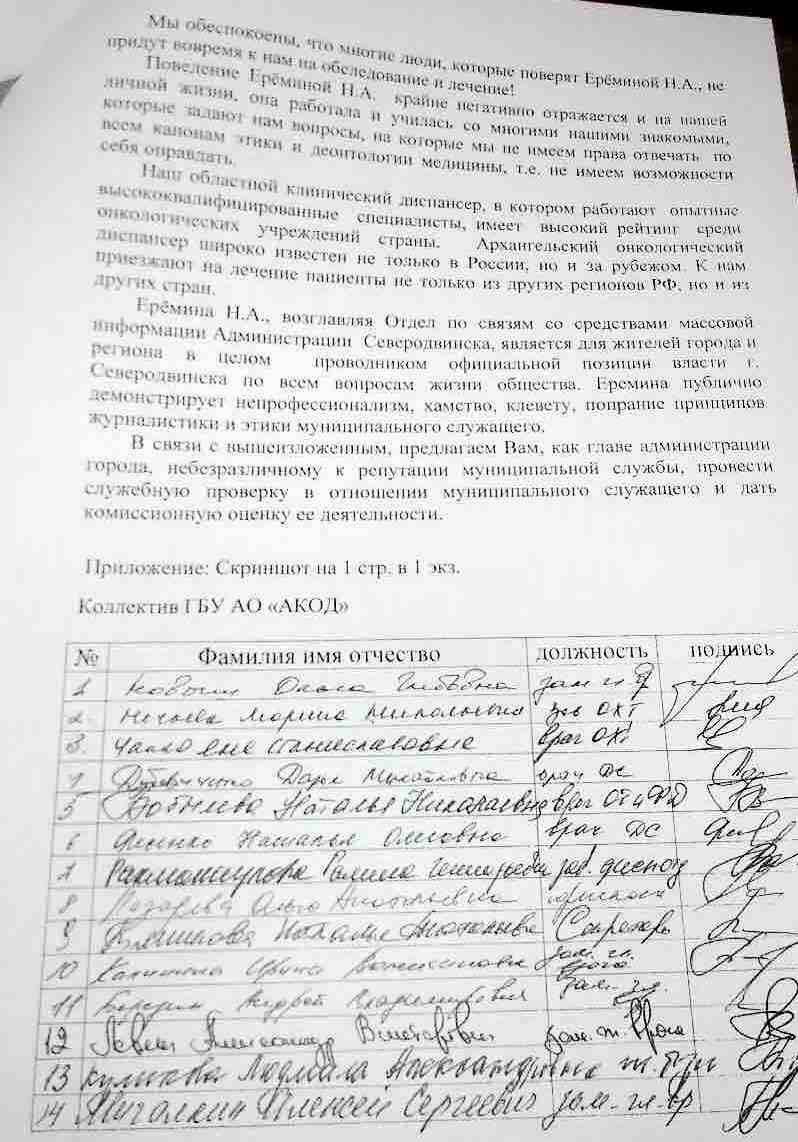 Мы обеспокоены, что многие люди, которые поверят Ерёминой Н.А., не
придут вовремя к нам на обследование и лечение!
Поведение Ерёминой Н.А. крайне негативно отражается и на нашей
личной жизни, она работала и училась со многими нашими знакомыми,
которые задают нам вопросы, на которые мы не имеем права отвечать по
всем канонам этики и деонтологии медицины, т.е. не имеем возможности
себя оправдать.
Наш областной клинический диспансер, в котором работают опытные
высококвалифицированные специалисты, имеет высокий рейтинг среди
онкологических учреждений страны. Архангельский онкологический
диспансер широко известен не только в России, но и за рубежом. К нам
приезжают на лечение пациенты не только из других регионов РФ, но и из
других стран.
Ерёмина Н.А., возглавляя Отдел по связям со средствами массовой
информации Администрации Северодвинска, является для жителей города и
региона в целом проводником официальной позиции власти г.
Северодвинска по всем вопросам жизни общества. Еремина публично
демонстрирует непрофессионализм, хамство, клевету, попрание принципов
журналистики и этики муниципального служащего.
В связи с вышеизложенным, предлагаем Вам, как главе администрации
города, небезразличному к репутации муниципальной службы, провести
служебную проверку в отношении муниципального служащего и дать
комиссионную оценку ее деятельности.
Приложение: Скриншот на 1 стр. в 1 экз.
Коллектив ГБУ АО «АКОД»
№ Фамилия имя отчество должность подпись
1 Ольга Глебовна
2. Марина зав ОХТ
3. Станиславовна врач ОХТ
4 Дарья Михайловна врач ДС
5 Наталья Николаевна врач
6 Наталья Олеговна врач ДС
7 Галина
8 Лазарева Ольга Анатольевна
9 Наталья Анатольевна Секретарь
10 Ирина зам. гл. врача
11 Андрей Владимирович зам. гл.
12 Левит Александр Викторович зам. гл. врача
13 Куликова Людмила Александровна гл. бух
14 Мигалкин Алексей Сергеевич зам. гл. вр